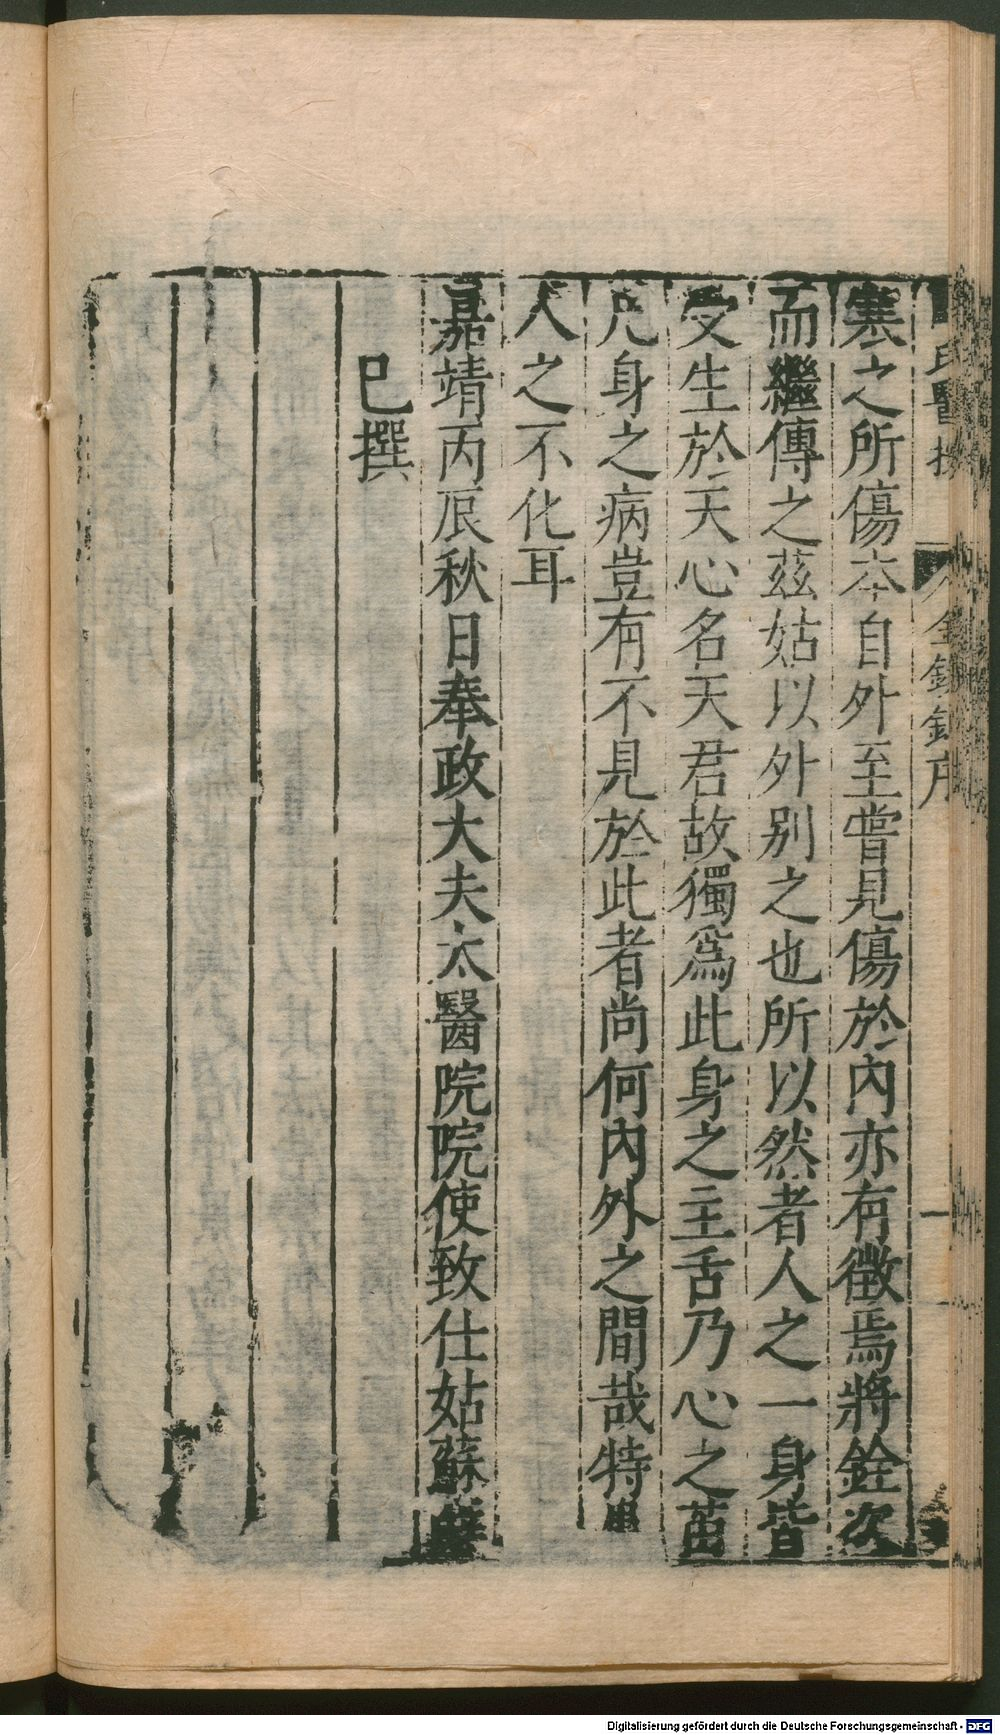 寒之所傷本自外至嘗見傷於內亦有徵焉將銓次
而繼傳之茲姑以外別之也所以然者人之一身皆
受生於天心名天君故獨爲此身之主舌乃心之苗
凡身之病豈有不見於此者尚何內外之間哉特
人之不化耳
嘉靖丙辰秋日奉政大夫太醫院院使致仕姑蘇薛
已撰
氏醫按 金鏡錄序 一
Digitalisierung gefördert durch die Deutsche Forschungsgemeinschaft - DFG